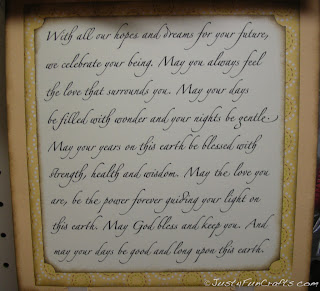 With all our hopes and dreams for your future,
we celebrate your being. May you always feel
the love that surrounds you. May your days
be filled with wonder and your nights be gentle.
May your years on this earth be blessed with
strength, health and wisdom. May the love you
are, be the power forever guiding your light on
this earth. May God bless and keep you. And
may your days be good and long upon this earth.
©JustyFunCrafts.com